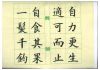 自力更生
適可而止
自食其果
一髮千鈞